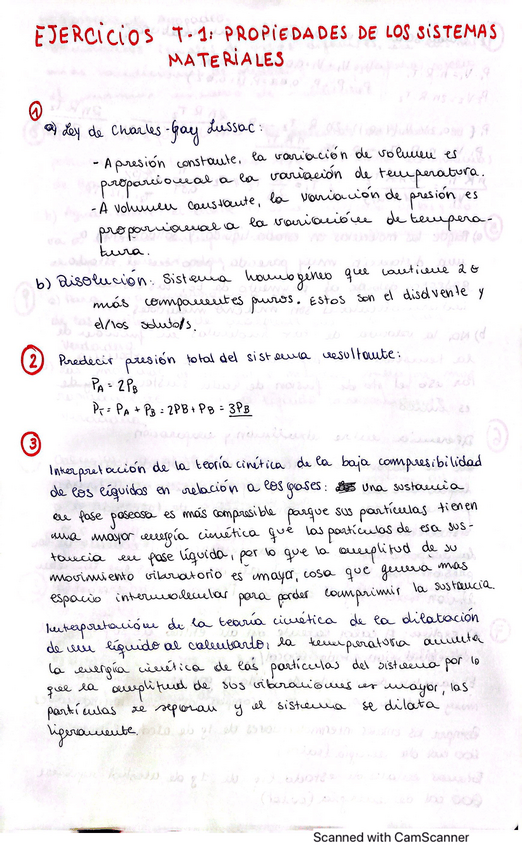 EJERCICIOS T-1: PROPIEDADES DE LOS SISTEMAS
MATERIALES
1
a) Ley de Charles-Gay Lussac:
- A presión constante, la variación de volumen es
proporcional a la variación de temperatura.
- A volumen constante, la variación de presión es
proporcional a la variación de tempera-
tura.
b) Disolución: Sistema homogéneo que contiene 2 o
más componentes puros. Estos son el disolvente y
el/los soluto/s.
2 Predecir presión total del sistema resultante:
PA = 2PB
PT = PA + PB = 2PB + PB = 3PB
3
Interpretación de la teoría cinética de la baja compresibilidad
de los líquidos en relación a los gases: una sustancia
en fase gaseosa es más compresible porque sus partículas tienen
una mayor energía cinética que las partículas de esa sus-
tancia en fase líquida, por lo que la amplitud de su
movimiento vibratorio es mayor, cosa que genera más
espacio intermolecular para poder comprimir la sustancia.
Interpretación de la teoría cinética de la dilatación
de un líquido al calentarlo: la temperatura aumenta
la energía cinética de las partículas del sistema por lo
que la amplitud de sus vibraciones es mayor, las
partículas se separan y el sistema se dilata
ligeramente.
Scanned with CamScanner